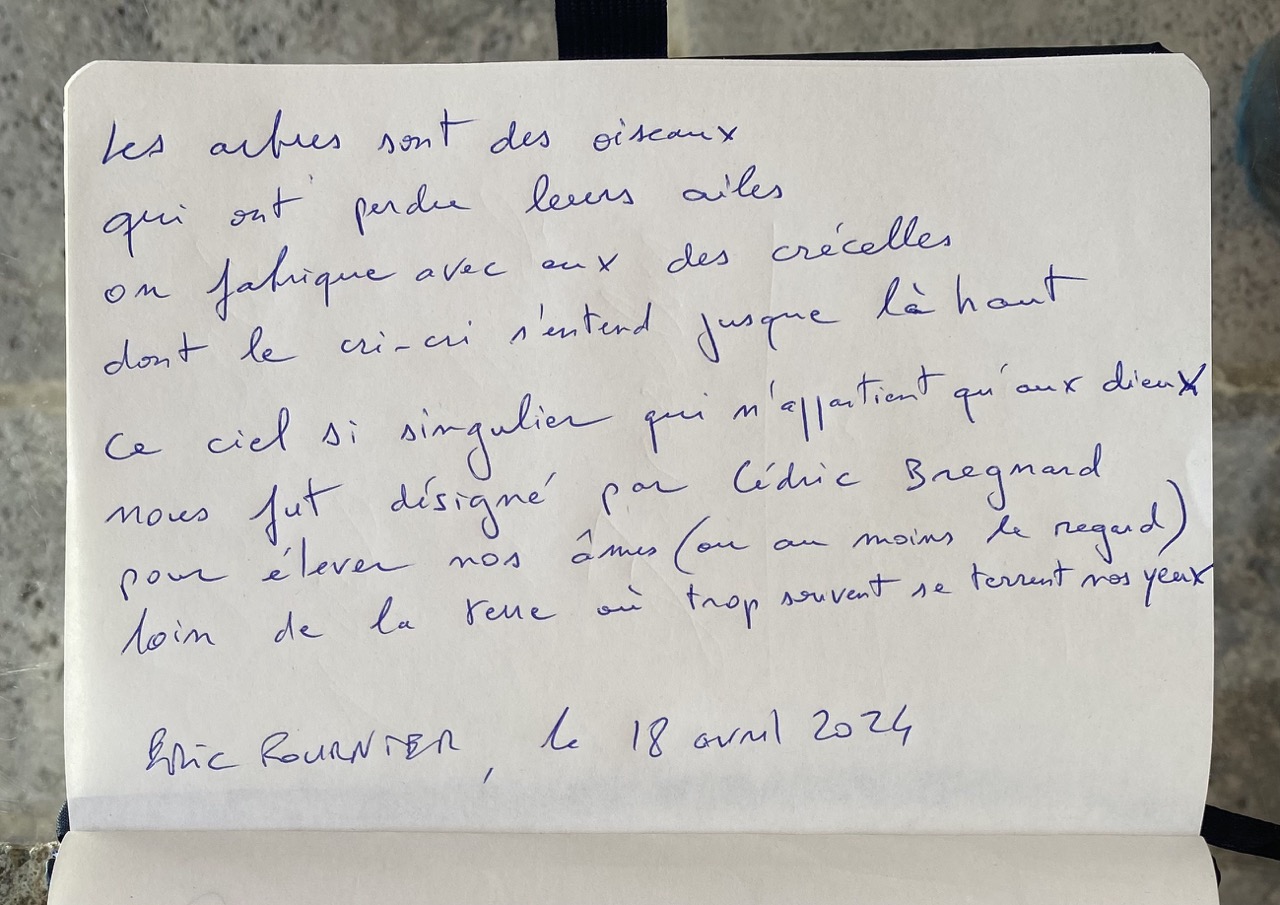 Les arbres sont des oiseaux
qui ont perdu leurs ailes
on fabrique avec eux des crécelles
dont le cri-cri s'entend jusque là haut
Ce ciel si singulier qui n'appartient qu'aux dieux
nous fut désigné par Cédric Bregnard
pour élever nos âmes (ou au moins le regard)
loin de la terre où trop souvent se terrent nos yeux
Eric FOURNIER, le 18 avril 2024